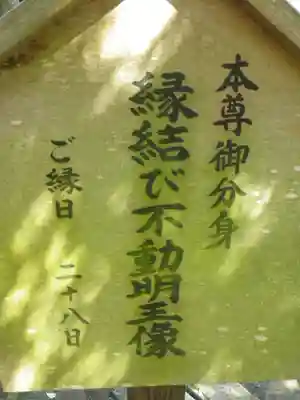 本尊御分身
縁結び不動明王像
ご縁日 二十八日